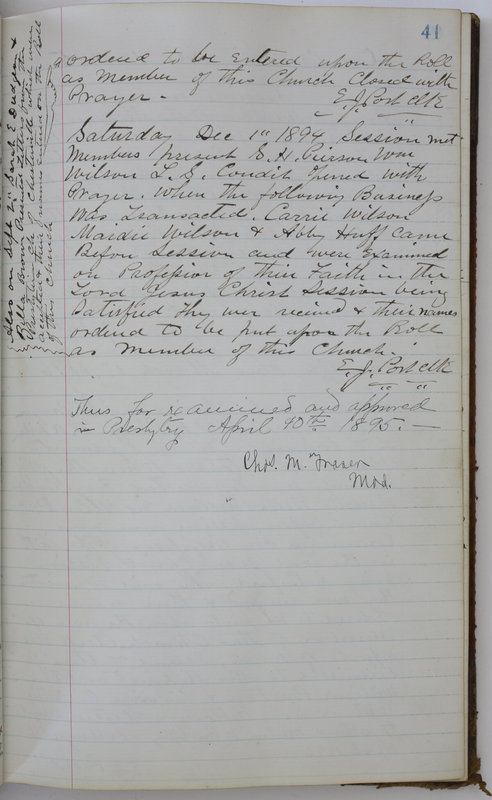 41
ordered to be Entered upon the Roll
as Member of this Church Closed with
Prayer.
E. J. Port clk
Saturday Dec 1st 1894 Session met
Members present E. H. Pierson Wm
Wilson L. S. Condit Opened with
Prayer. When the following Business
was Transacted. Carrie Wilson
Maidie Wilson & Abby Huff came
Before Session and were Examined
on Profession of their Faith in the
Lord Jesus Christ Session being
Satisfied They wer recived & their names
ordend to be put upon the Roll
as Member of this Church.
E. J. Port clk
Thus far examined and approved
in Presbytry April 10th 1895.
Chas. M. Fraser
Mod.
Also on Sept 2" Sarah E Dudgeon &
Rilla Brown Presented Letters from the
of Cheesesville which were
accepted & their names entered on the Roll
of this Church